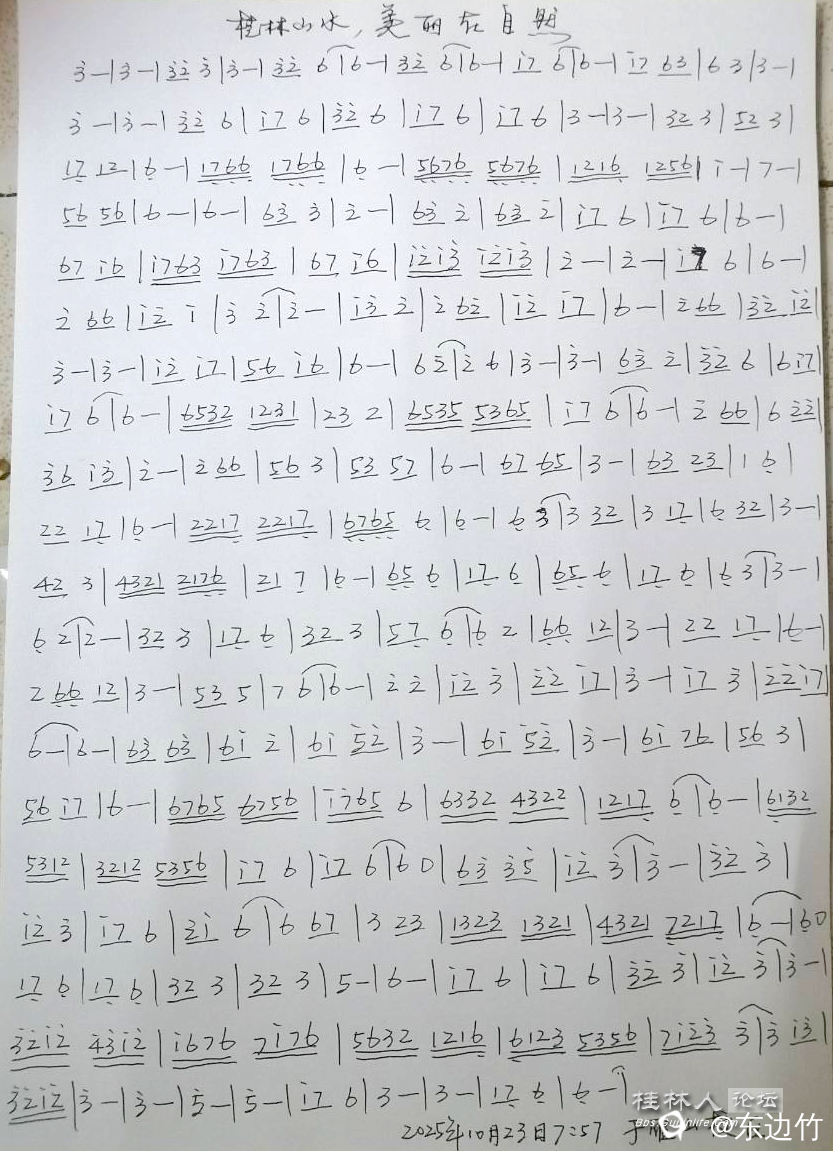 桂林山水，美丽在自然
3̇ - | 3̇ - | 3̇2̇ 3̇ | 3̇ - | 3̇2̇ 6 | 6 - | 3̇2̇ 6 | 6 - | i7 6 | 6 - | i7 63 | 6 3 | 3 - |
3̇ - | 3̇ - | 3̇2̇ 6 | i7 6 | 3̇2̇ 6 | i7 6 | i7 6 | 3 - | 3 - | 32 3 | 52 3 |
17 12 | 6 - | 1766 1766 | 6 - | 5676 5676 | 1216 1256 | i - | 7 - |
56 56 | 6 - | 6 - | 63̇ 3̇ | 2̇ - | 63̇ 2̇ | 63̇ 2̇ | i7 6 | i7 6 | 6 - |
67 i6 | i763 i763 | 67 i6 | i2̇i3̇ i2̇i3̇ | 2̇ - | 2̇ - | i7 6 | 6 - |
2̇ 66 | i2̇ i | 3̇ 2̇ | 2̇ - | i3̇ 2̇ | 2̇ 62̇ | i2̇ i7 | 6 - | 2̇ 66 | 3̇2̇ i2̇ |
3̇ - | 3̇ - | i2̇ i7 | 56 i6 | 6 - | 6 2̇ | 2̇ 6 | 3̇ - | 3̇ - | 63̇ 2̇ | 3̇2̇ 6 | 6 i7 |
i7 6 | 6 - | 6532 1231 | 23 2 | 6535 5365 | i7 6 | 6 - | 2̇ 66 | 6 2̇2̇ |
3̇6 i3̇ | 2̇ - | 2̇ 66 | 56 3 | 53 57 | 6 - | 67 65 | 3 - | 63 23 | 1 6 |
22 17 | 6 - | 2217 2217 | 6765 6 | 6 - | 6 3 | 3 32 | 3 17 | 6 32 | 3 - |
42 3 | 4321 2176 | 21 7 | 6 - | 65 6 | 17 6 | 65 6 | 17 6 | 6 3 | 3 - |
6 2 | 2 - | 32 3 | 17 6 | 32 3 | 57 6 | 6 2 | 66 12 | 3 - | 22 17 | 6 - |
2 66 12 | 3 - | 53 5 | 7 6 | 6 - | 2̇ 2̇ | i2̇ 3̇ | 2̇2̇ i7 | 3̇ - | i7 3 | 2̇2̇i7 |
6 - | 6 - | 63̇ 63̇ | 6i 2̇ | 6i 5̇2̇ | 3̇ - | 6i 5̇2̇ | 3̇ - | 6i 76 | 56 3 |
56 i7 | 6 - | 6765 6756 | i765 6 | 6332 4322 | 1217 6 | 6 - | 6132
5312 | 3212 5356 | i7 6 | i7 6 | 6 0 | 63̇ 3̇5̇ | i2̇ 3̇ | 3̇ - | 3̇2̇ 3̇ |
i2̇ 3̇ | i7 6 | 2̇i 6 | 6 67 | 3 23 | 1323 1321 | 4321 7217 | 6 - | 6 0
17 6 | 17 6 | 32 3 | 32 3 | 5 - | 6 - | i7 6 | i7 6 | 3̇2̇ 3̇ | i2̇ 3̇ | 3̇ - |
3̇2̇i2̇ 4̇3̇i2̇ | i676 7i76 | 5632 1216 | 6123 5356 | 7i2̇3̇ 3̇ | 3̇ i3̇ |
3̇2̇i2̇ | 3̇ - | 3̇ - | 5̇ - | 5̇ - | i7 6 | 3 - | 3 - | 17 6 | 6 - |
2025年10月23日7:57 于
桂林人论坛
@东边竹